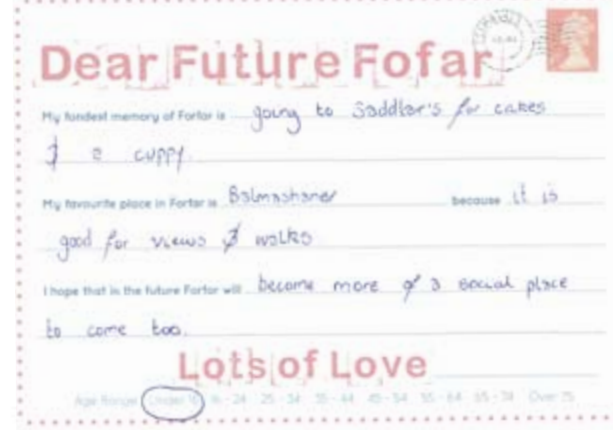 Dear Future Fofar
My fondest memory of Forfar is going to Saddler's for cakes
& a cuppy.
My favourite place in Forfar is Balmashaner because it is
good for views & walks
I hope that in the future Forfar will become more of a social place
to come too.
Lots of Love
Age Range Under 16 16 - 24 25 - 34 35 - 44 45 - 54 55 - 64 65 - 74 Over 75